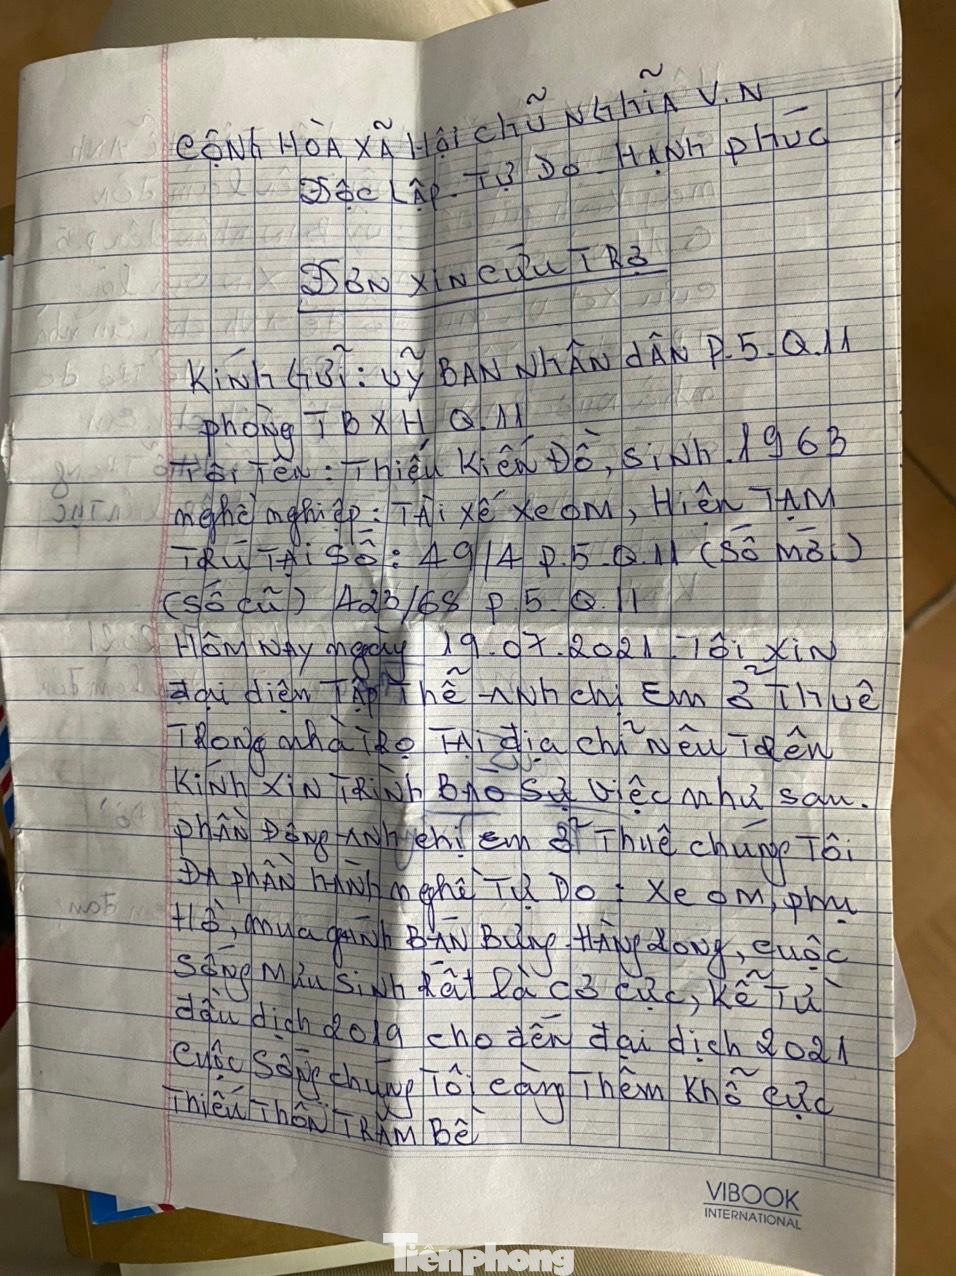 CỘNh HÒA XÃ Hội chũ Nghĩa V.N
Độc Lập - Tự Do - HẠNh phúc
ĐƠN XIN CỨU TRỢ
Kính Gửi : Uỹ BAN NhÂN dÂN p.5.Q.11
phòng TBXH Q.11
Tôi Tên : Thiếu Kiến Đồ, sinh.1963
nghề nghiệp : Tài xế xe ôm, Hiện TẠM
TRÚ TẠI Số : 49/4 p.5.Q.11 (số mới)
(số cũ) 423/68 p.5.Q.11
Hôm NAy ngày 19.07.2021. Tôi xin
đại diện TẬP Thễ ANh chị Em ở Thuê
TRong nhà TRọ TẠi địa chĩ nêu TRên
KíNh XiN TRìNh BÁO Sự việc như sau.
phần Đông ANh chị em ở Thuê chúng Tôi
ĐA phần hành nghề Tự Do : xe ôm, phụ
Hồ, mua gánh BÁN Bưng Hàng Rong, cuộc
sống mưu sinh Rất là cơ cực, Kễ Từ
đầu dịch 2019 cho đến đại dịch 2021
cuộc sống chúng Tôi càng Thêm Khỗ cực
Thiếu Thốn TRĂM Bề
VIBOOK
INTERNATIONAL
Tiênphong